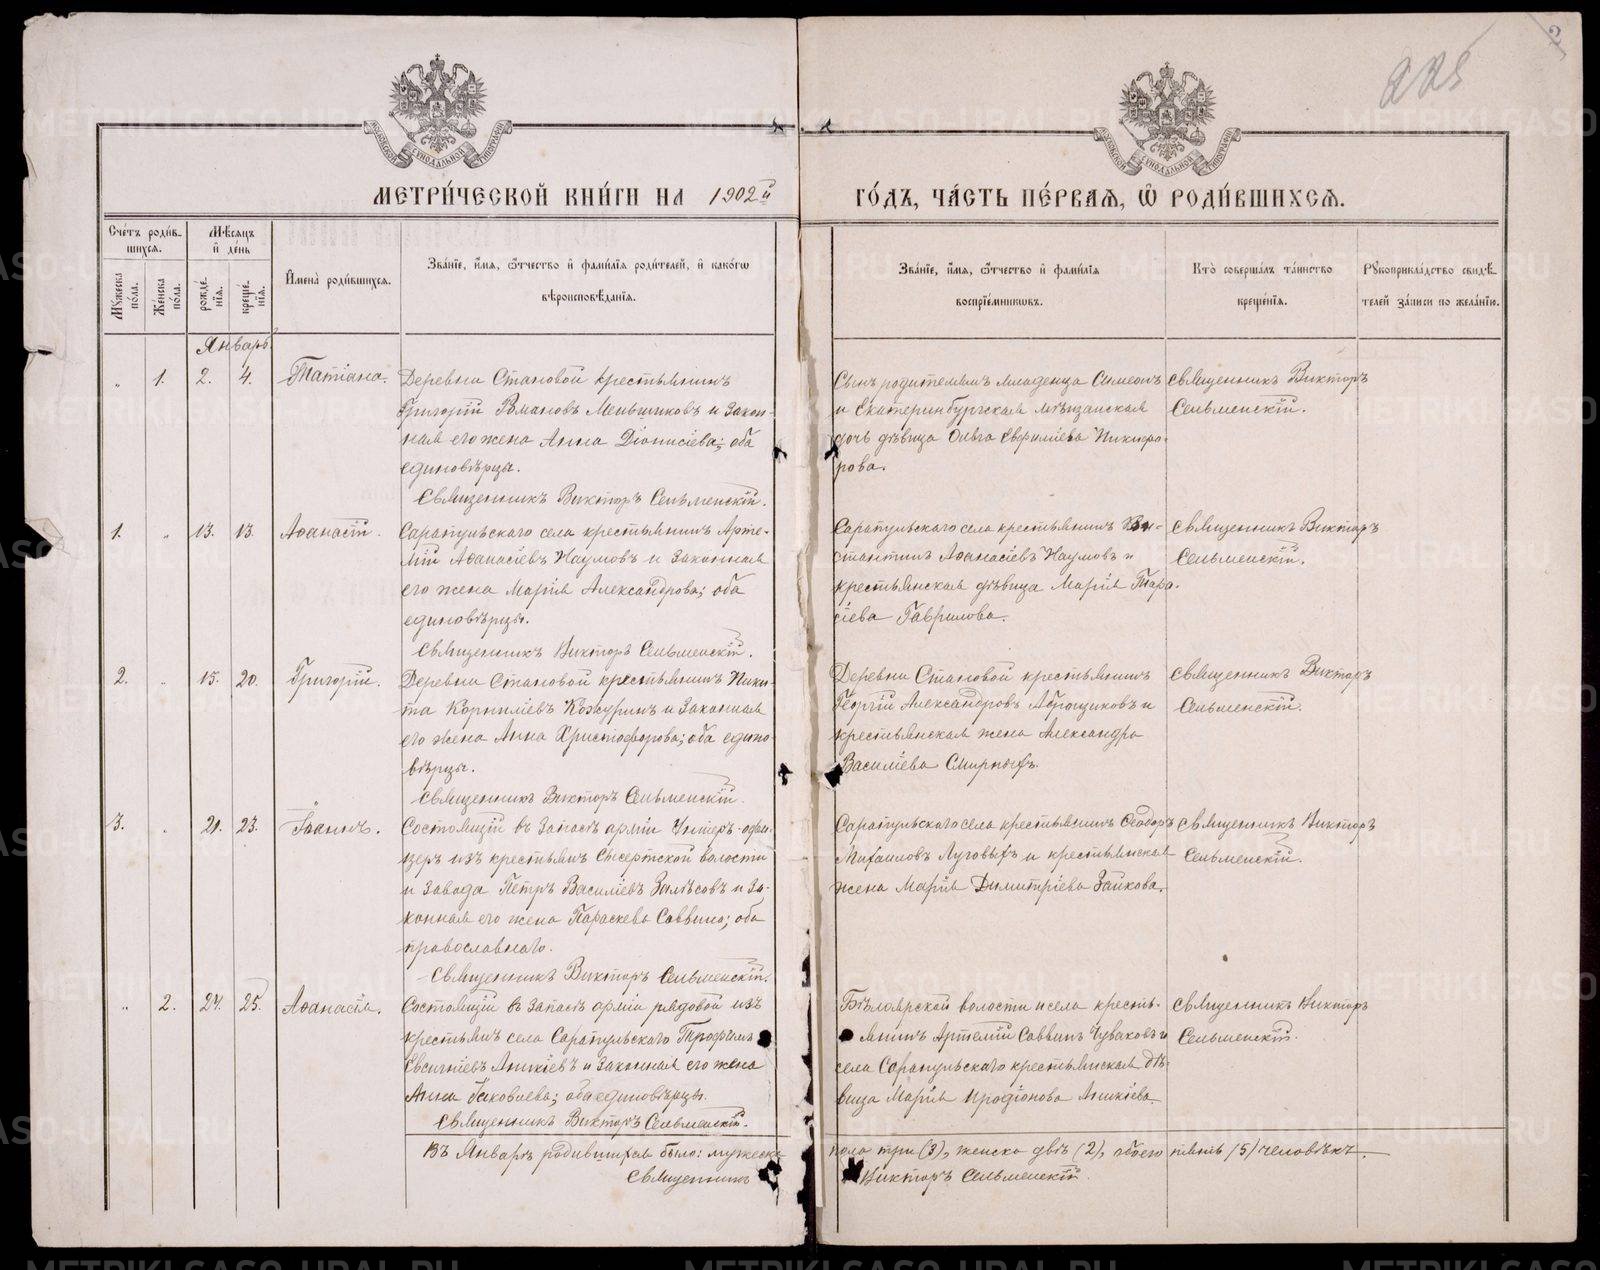 225
2
МОСКОВСКОЙ СѴНОДАЛЬНОЙ ТИПОГРАФІИ
МОСКОВСКОЙ СѴНОДАЛЬНОЙ ТИПОГРАФІИ
МЕТРИ́ЧЕСКОЙ КНИ́ГИ НА 1902й ГО́ДЪ, ЧА́СТЬ ПЕ́РВАЯ, Ѿ РОДИ́ВШИХСЯ.
Сче́тъ роди́в-
шихся.
Мѣ́сяцъ
и де́нь
Му́жеска
по́ла.
Же́нска
по́ла.
рожде́-
нія.
креще́-
нія.
Имена̀ роди́вшихся.
Зва́ніе, и́мя, ѻ́тчество и фами́лія роди́телей, и како́гѡ
вѣроисповѣ́данія.
Зва́ніе, и́мя, ѻ́тчество и фами́лія
воспріе́мникѡвъ.
Кто̀ соверша́лъ та́инство
креще́нія.
Рукоприкла́дство свидѣ́-
телей за́писи по жела́нію.
Январь.
„ 1. 2. 4. Татіана.
Деревни Становой крестьянинъ
Григорій Романовъ Меньшиковъ и закон-
ная его жена Анна Діонисіева; оба
единовѣрцы.
Священникъ Викторъ Сельменскій.
Сынъ родителямъ младенца Симеонъ
и Екатеринбургская мѣщанская
дочь дѣвица Ольга Евфиміева Никифо-
рова.
Священникъ Викторъ
Сельменскій.
1. „ 13. 13. Аѳанасій.
Сарапульскаго села крестьянинъ Арте-
мій Аѳанасіевъ Наумовъ и законная
его жена Марія Александрова; оба
единовѣрцы.
Священникъ Викторъ Сельменскій.
Сарапульскаго села крестьянинъ Кон-
стантинъ Аѳанасіевъ Наумовъ и
крестьянская дѣвица Марія Тара-
сіева Гаврилова.
Священникъ Викторъ
Сельменскій.
2. „ 15. 20. Григорій.
Деревни Становой крестьянинъ Ники-
та Корниліевъ Кожуринъ и законная
его жена Анна Христофорова; оба едино-
вѣрцы.
Священникъ Викторъ Сельменскій.
Деревни Становой крестьянинъ
Георгій Александровъ и
крестьянская жена Александра
Василіева Смирныхъ.
Священникъ Викторъ
Сельменскій.
3. „ 21. 23. Іоаннъ.
Состоящій въ запасѣ арміи Унтеръ-офи-
церъ изъ крестьянъ Сысертской волости
и завода Петръ Василіевъ Залѣсовъ и за-
конная его жена Параскева Саввина; оба
православнаго.
Священникъ Викторъ Сельменскій.
Сарапульскаго села крестьянинъ Ѳеодоръ
Михаиловъ Луговыхъ и крестьянская
жена Марія Димитріева Заикова.
Священникъ Викторъ
Сельменскій.
„ 2. 24. 25. Аѳанасія.
Состоящій въ запасѣ арміи рядовой изъ
крестьянъ села Сарапульскаго Трофимъ
Евсигніевъ Аникіевъ и законная его жена
Анна Іаковлева; оба единовѣрцы.
Священникъ Викторъ Сельменскій.
Бѣлоярской волости и села кресть-
янинъ Артемій Саввинъ Чуваковъ и
села Сарапульскаго крестьянская дѣ-
вица Марія Иродіонова Аникіева.
Священникъ Викторъ
Сельменскій.
Въ Январѣ родившихся было: мужеска пола три (3), женска двѣ (2), обоего пять (5) человѣкъ.
Священникъ Викторъ Сельменскій.
METRIKI.GASO-URAL.RU